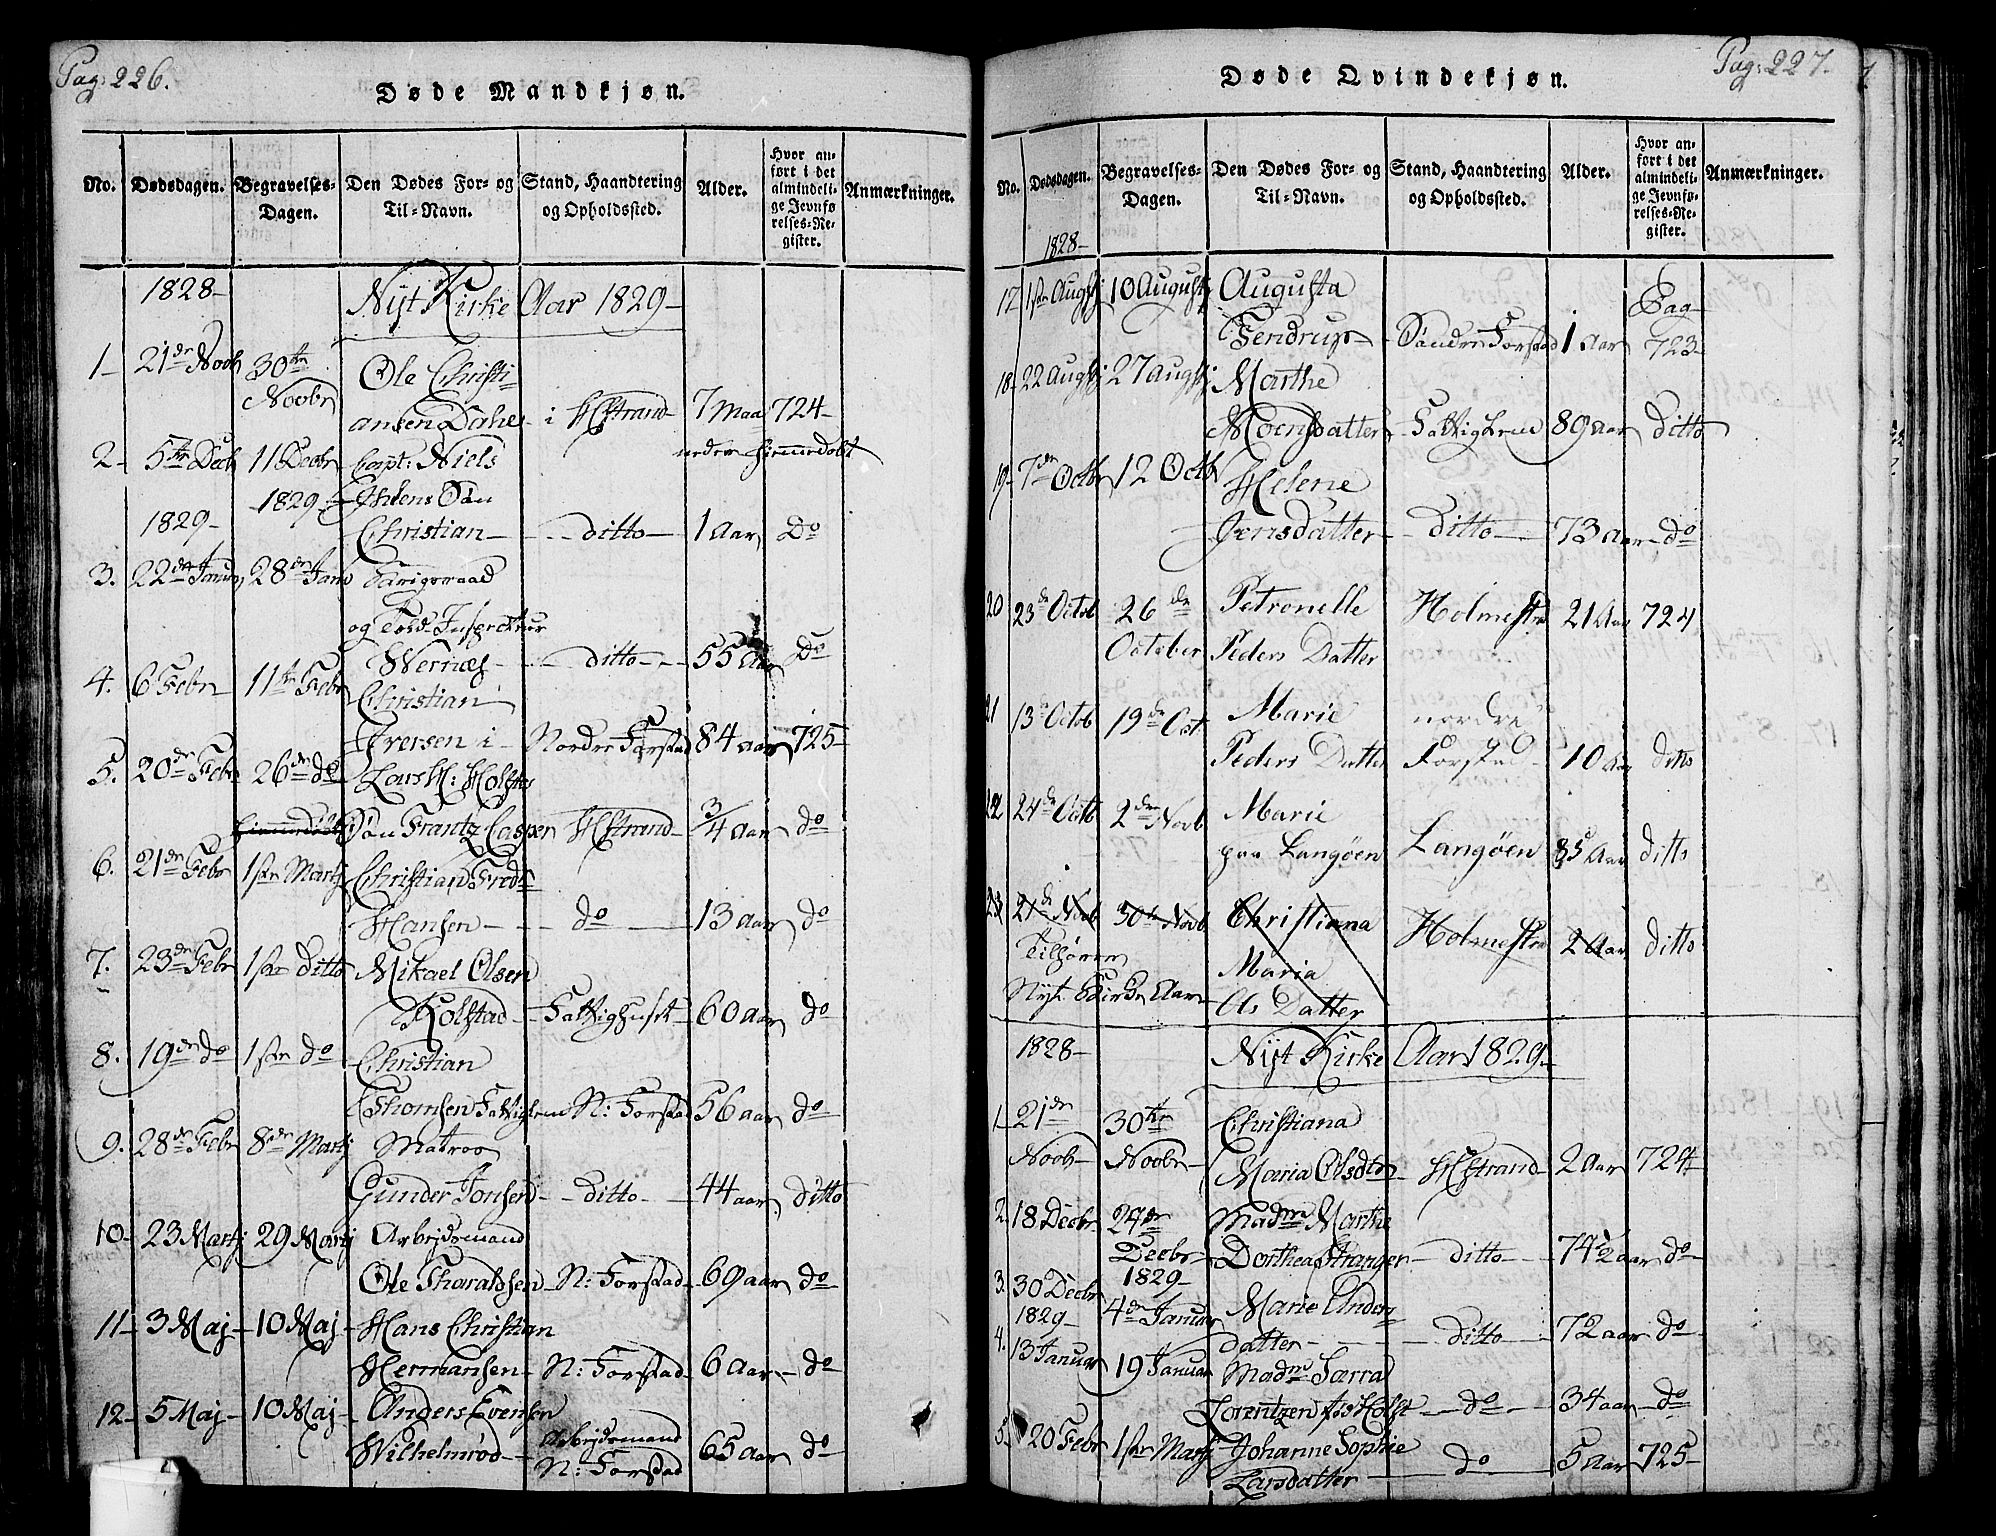 Pag: 226.
Døde Mandkjøn.
No. Dødsdagen. Begravelses-Dagen. Den Dødes For- og Til-Navn. Stand, Haandtering og Opholdssted. Alder. Hvor anført i det almindelige Jevnførelses-Register. Anmærkninger.
1828- Nyt Kirke Aar 1829-
1- 21de Novb 30te Ole Christi-
Novbr ansen Dahl - i HStrand 7 Maa 724-
2- 5te Decb 11 Decbr Capt: Niels
1829- Ihlens Søn
1829- Christian - ditto - 1 Aar Do
3. 22de Januar 28de Janu
og Told-Inspecteur
Wernces - ditto - 55 Aar Do
4. 6 Febr 11te Febr Christian
Iversen i - Nordre Forstad 84 aar 725-
5. 20de Febr 26de do Lars H: Holsts
Søn Frantz Casper HStrand 3/4 aar do
6. 21de Febr 1ste Martj Christian Fredr
Hansen - do - 13 aar do
7. 23de Febr 1ste ditto Mikael Olsen
Kolstad - Fattighuset - 60 aar do
8. 19de do 1ste do Christian
Thomsen Fattiglem N: Forstad 56 aar do
9. 28de Febr 8de Martj Matros
Gunder Jonsen - ditto - 44 aar ditto
10- 23 Martj 29 Martj Arbejdsmand
Ole Tharaldsen N: Forstad 69 aar do
11- 3 Maj 10 Maj Hans Christian
Hermansen N: Forstad 6 Aar do
12- 5 Maj 10 Maj Anders Evensen
Wilhelmrød - Arbejdsmand N: Forstad 65 aar do
Pag: 227.
Døde Qvindekjøn.
No. Dødsdagen. Begravelses-Dagen. Den Dødes For- og Til-Navn. Stand, Haandtering og Opholdssted. Alder. Hvor anført i det almindelige Jevnførelses-Register. Anmærkninger.
1828-
17 1ste Augstj 10 Augustj Augusta Pag
Tendrup - Søndre Forstad 1 Aar 723-
18- 22 Augstj 27 Augstj Marthe
Moensdatter - Fattiglem 89 Aar ditto
19- 7de Octbr 12 Octb Helene
Jensdatter - Ditto - 73 Aar do
20 23de Octob 26de Petronelle Holmestr 21 Aar 724
October Peders Datter
21 13de Octob 19de Oct. Marie nordre
Peders Datter Forstad 10 Aar ditto
22 24de Octb 2den Novb Marie
paa Langøen Langøen 85 Aar ditto
23 21de Novb 30te Novb Christiana Holmestr 2 Aar ditto
Tilhører Maria
Nyt Kirke Aar Ols Datter
1828- Nyt Kirke Aar 1829-
1- 21de 30te Christiana
Novb Novbr Maria Olsdtr HStrand 2 Aar 724
2. 18 Decbr 29de Madme Marthe
Decbr Dorthea Stranger - ditto - 74 1/2 aar do
1829-
3. 30 Decbr 4de Januar Marie Anders
1829- datter - ditto - 72 aar do
4. 13 Januar 19 Januar Madme Sarra
Lorentzen Holst - do - 34 aar - do
5. 20 Febr 1ste Martj Johanne Sophie
Larsdatter - do - 5 Aar 725-